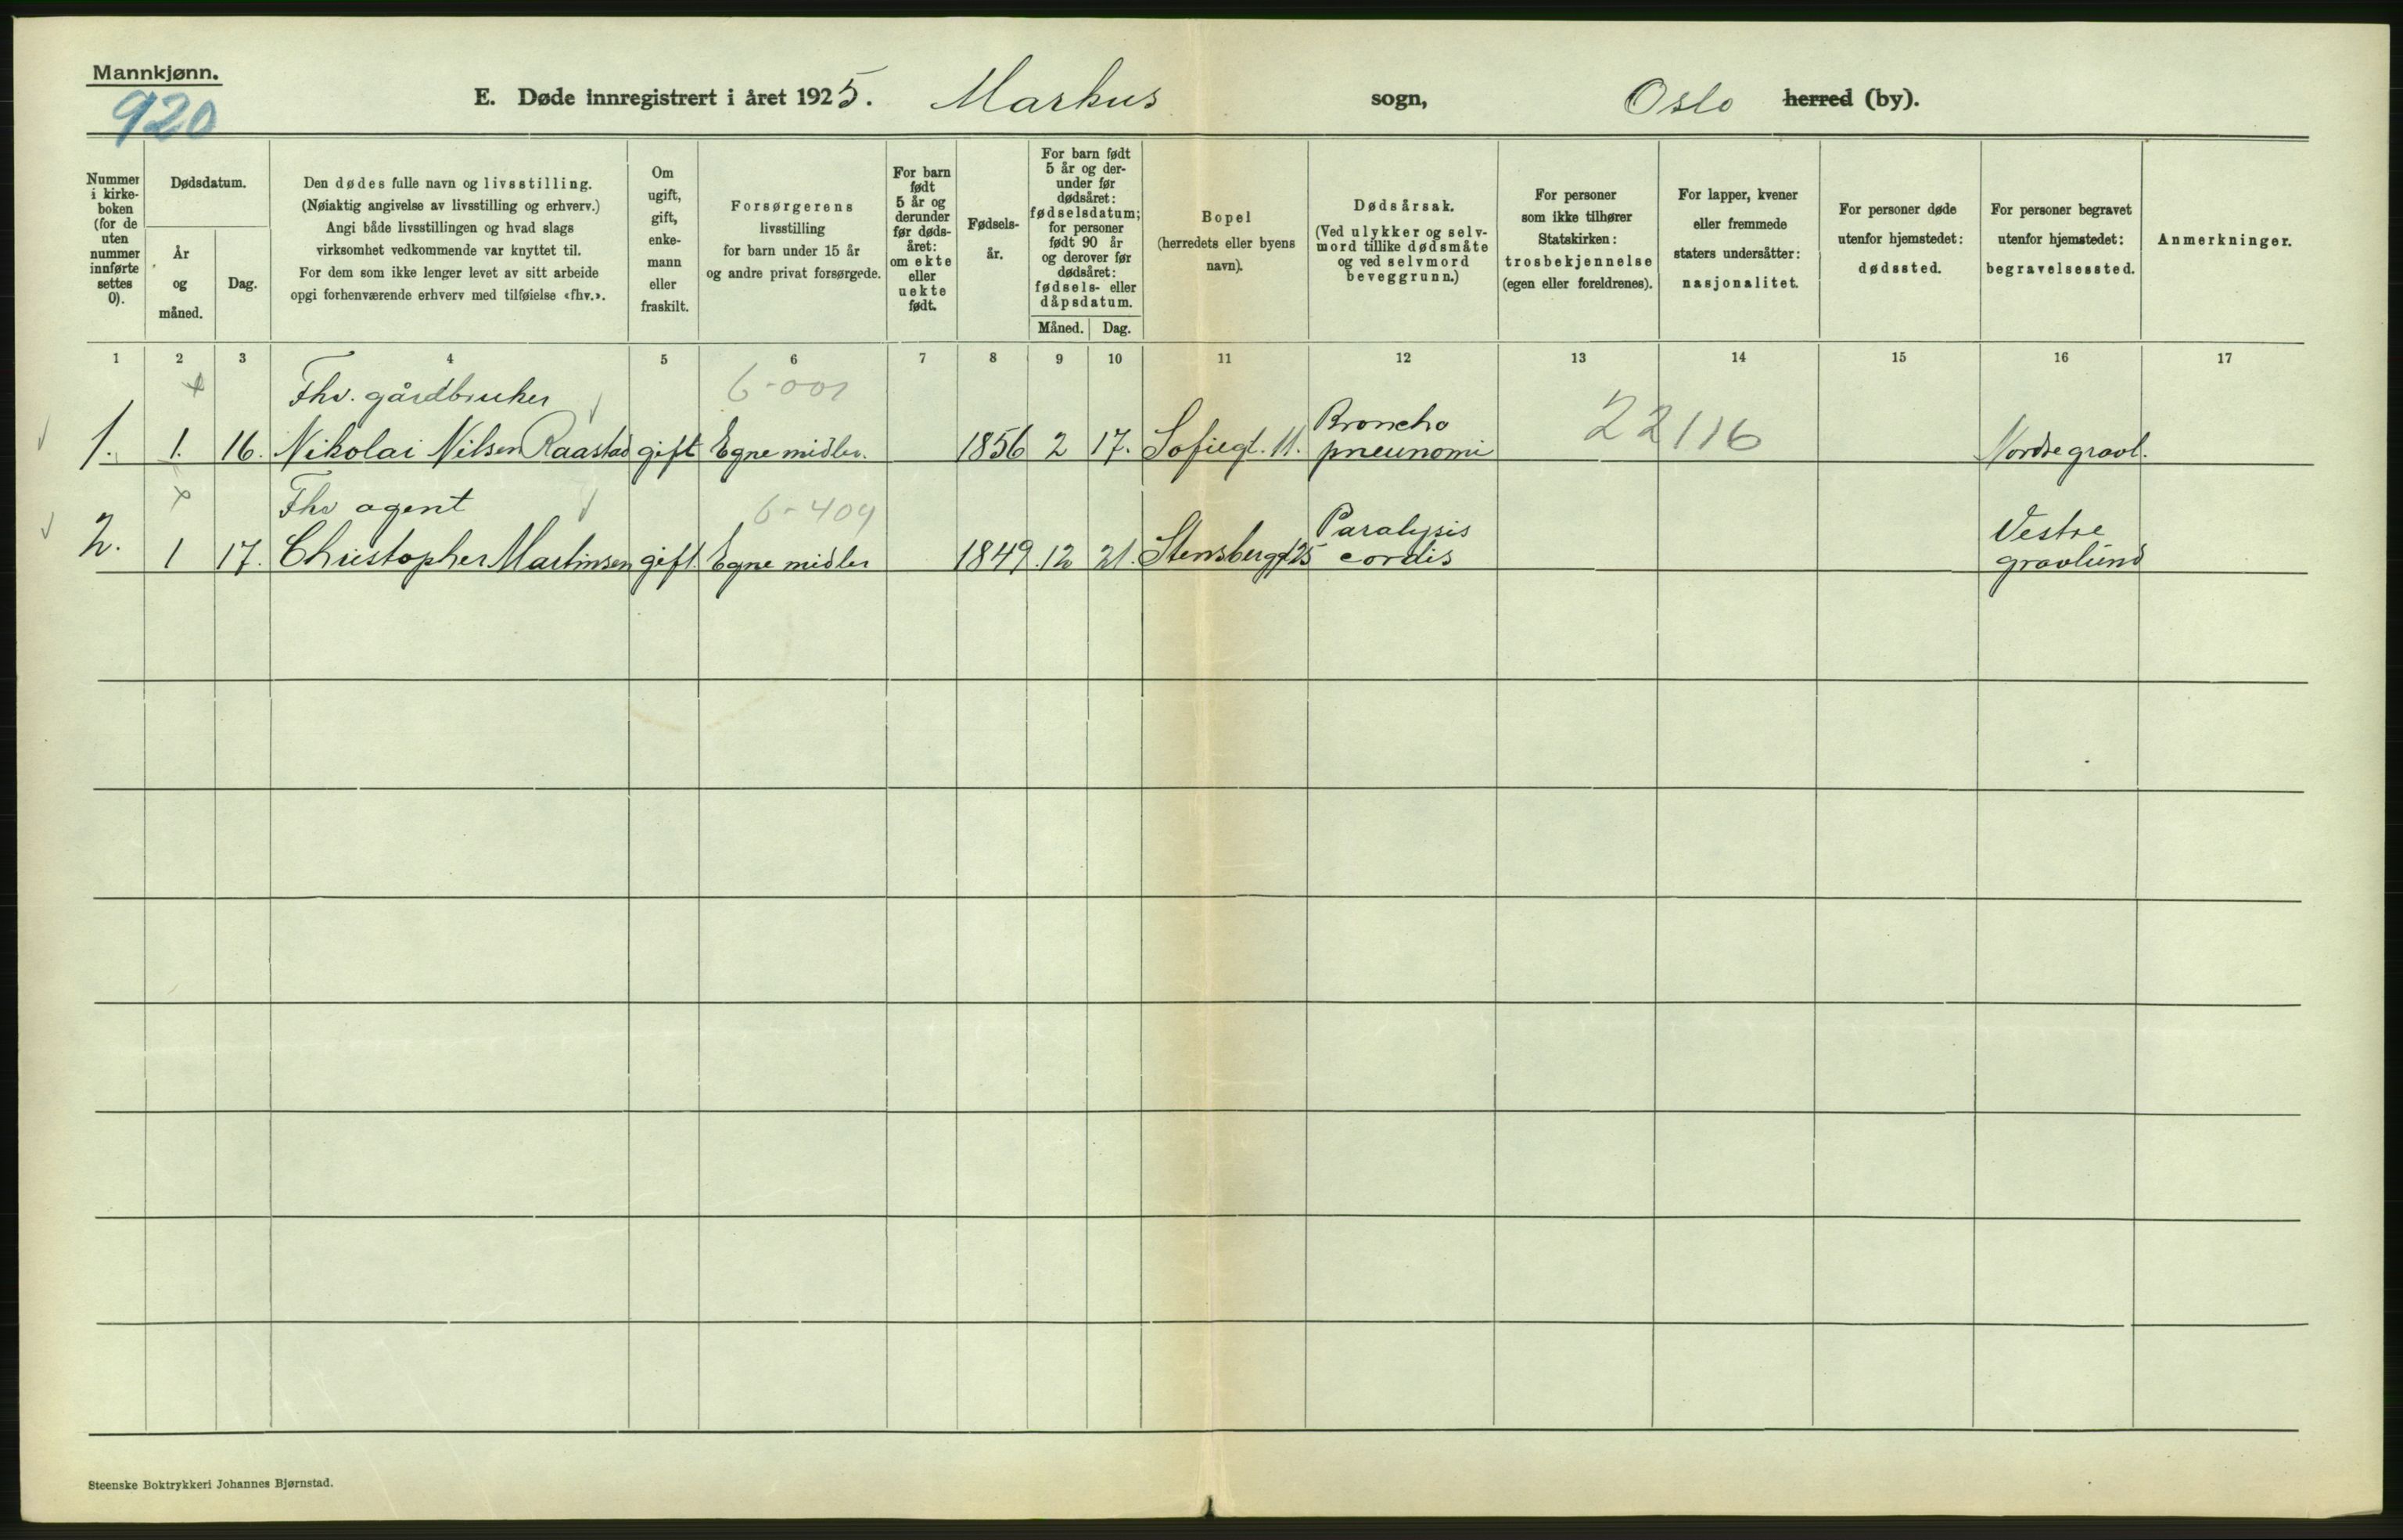 Mannkjønn.
920
E. Døde innregistrert i året 1925. Markus sogn, Oslo herred (by).
Nummer i kirke-boken (for de uten nummer innførte settes 0).
Dødsdatum.
År og måned.
Dag.
Den dødes fulle navn og livsstilling.
(Nøiaktig angivelse av livsstilling og erhverv.)
Angi både livsstillingen og hvad slags
virksomhet vedkommende var knyttet til.
For dem som ikke lenger levet av sitt arbeide
opgi forhenværende erhverv med tilføielse «fhv.».
Om ugift, gift, enke-mann eller fraskilt.
Forsørgerens
livsstilling
for barn under 15 år
og andre privat forsørgede.
For barn født 5 år og derunder før døds-året: om ekte eller uekte født.
Fødsels-år.
For barn født 5 år og der-under før dødsåret: fødselsdatum; for personer født 90 år og derover før dødsåret: fødsels- eller dåpsdatum.
Måned. Dag.
Bopel
(herredets eller byens
navn).
Dødsårsak.
(Ved ulykker og selv-
mord tillike dødsmåte
og ved selvmord
beveggrunn.)
For personer
som ikke tilhører
Statskirken:
trosbekjennelse
(egen eller foreldrenes).
For lapper, kvener
eller fremmede
staters undersåtter:
nasjonalitet.
For personer døde
utenfor hjemstedet:
dødssted.
For personer begravet
utenfor hjemstedet:
begravelsessted.
Anmerkninger.
1 2 3 4 5 6 7 8 9 10 11 12 13 14 15 16 17
Fhv. gårdbruker 6-001 Broncho 22116
1. 1. 16. Nikolai Nilsen Raastad gift Egne midler. 1856 2 17. Sofiegt. 11. pneunomi Nordre gravl.
Fhv agent 6-409 Paralysis Vestre
2. 1 17. Christopher Martinsen gift. Egne midler 1849. 12 21. Stensberggt 25 cordis gravlund
Steenske Boktrykkeri Johannes Bjørnstad.